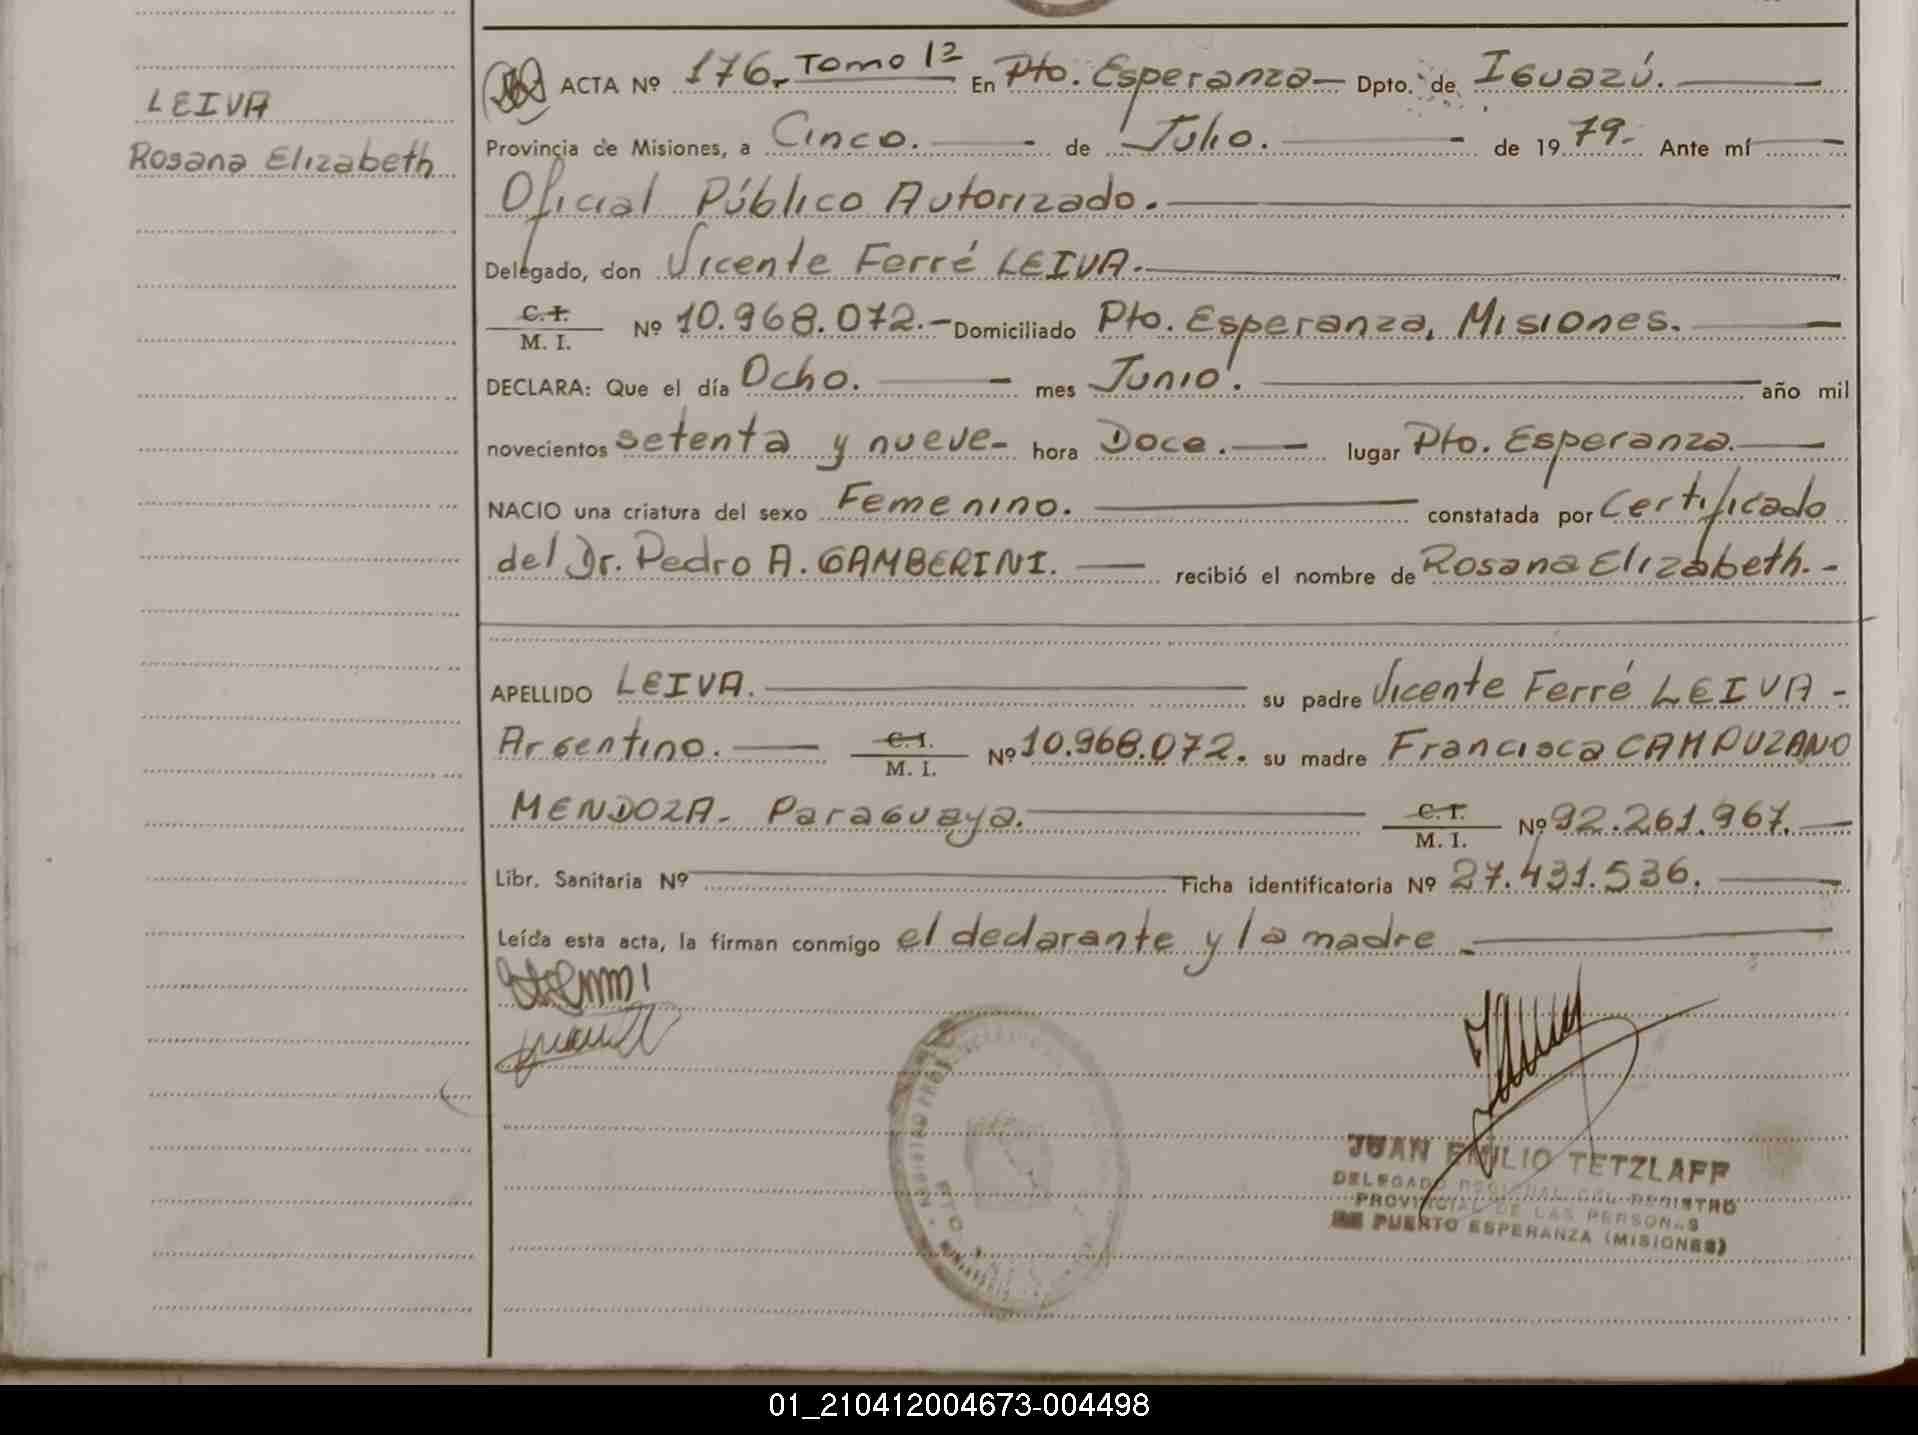 LEIVA
Rosana Elizabeth
ACTA Nº 176. Tomo 1º En Pto. Esperanza Dpto. de Iguazú.
Provincia de Misiones, a Cinco. de Julio. de 1979.- Ante mí
Oficial Público Autorizado.
Delegado, don Vicente Ferré LEIVA.
C.I. M. I. Nº 10.968.072.- Domiciliado Pto. Esperanza, Misiones.
DECLARA: Que el día Ocho. mes Junio. año mil
novecientos setenta y nueve- hora Doce. lugar Pto. Esperanza.
NACIO una criatura del sexo Femenino. constatada por Certificado
del Dr. Pedro A. GAMBERINI. recibió el nombre de Rosana Elizabeth.-
APELLIDO LEIVA. su padre Vicente Ferré LEIVA-
Argentino. C.I. M. I. Nº 10.968.072. su madre Francisca CAMPUZANO
MENDOZA- Paraguaya. C.I. M. I. Nº 92.261.967.
Libr. Sanitaria Nº Ficha identificatoria Nº 27.431.536.
Leída esta acta, la firman conmigo el declarante y la madre
JUAN EMILIO TETZLAFF
DELEGADO REGIONAL DEL REGISTRO
PROVINCIAL DE LAS PERSONAS
DE PUERTO ESPERANZA (MISIONES)
01_210412004673-004498